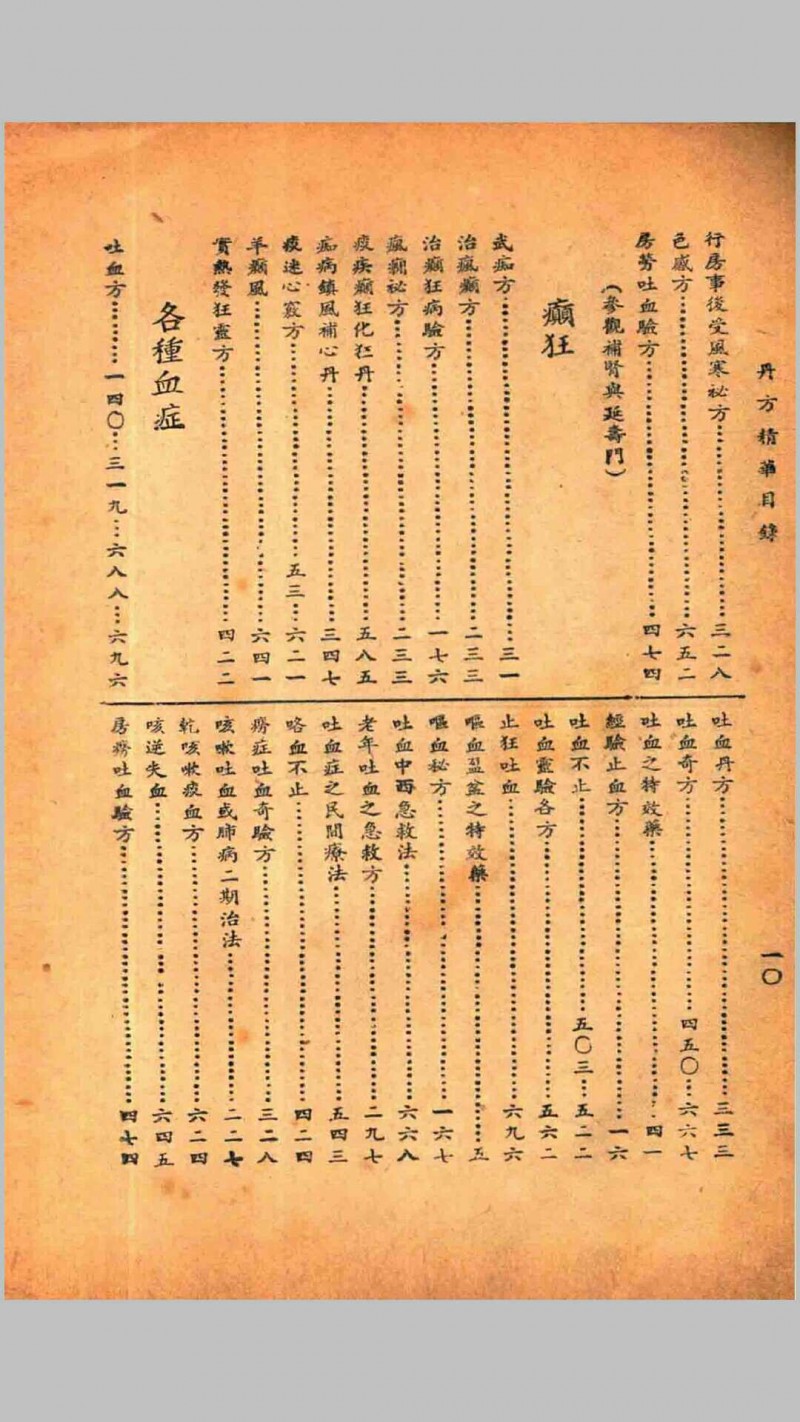 丹方精華目錄
一〇
行房事後受風寒祕方……三二八
色慼方……六五二
房勞吐血驗方……四七四
（參觀補腎與延壽門）
癲狂
武痴方……三一
治瘋癲方……二三三
治癲狂病驗方……一七六
瘋癲祕方……二三三
痰疾癲狂化狂丹……五八五
痴病鎮風補心丹……三四七
痰迷心竅方……五三…六二一
羊癲風……六四一
實熱發狂靈方……四二二
各種血症
吐血方……一四〇…三一九…六八八…六九六
吐血丹方……三三三
吐血奇方……四五〇…六六七
吐血之特效藥……四一
經驗止血方……一六
吐血不止……五〇三…五二二
吐血靈驗各方……五六二
止狂吐血……六九六
嘔血盈盆之特效藥……五
嘔血秘方……一六七
吐血中西急救法……六六八
老年吐血之急救方……二九七
吐血症之民間療法……五四三
咯血不止……四二四
癆症吐血奇驗方……三二八
咳嗽吐血或肺病二期治法……二二七
乾咳嗽痰血方……六二四
咳逆失血……六四五
房癆吐血驗方……四七四